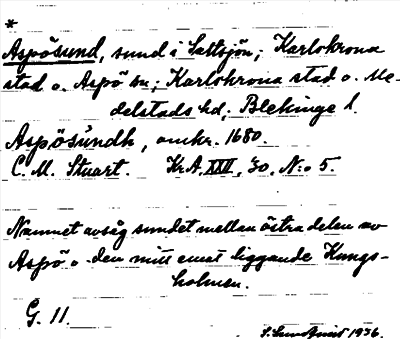 *
Aspösund, sund i Saltsjön; Karlskrona
stad o. Aspö sn; Karlskrona stad o. Me-
delstads hd; Blekinge l.
Aspösundh, omkr. 1680.
C. M. Stuart. Kr.A. XXII, 30, N:o 5.
Namnet avsåg sundet mellan östra delen av
Aspö o den mitt emot liggande Kungs-
holmen.
G. 11.
1936.